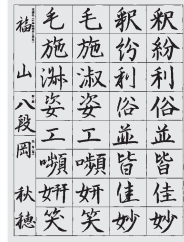 釈紛利俗並皆佳妙
釈紛利俗並皆佳妙
毛施淑姿工嚬妍笑
毛施淑姿工嚬妍笑
福山 八段 岡 秋穂